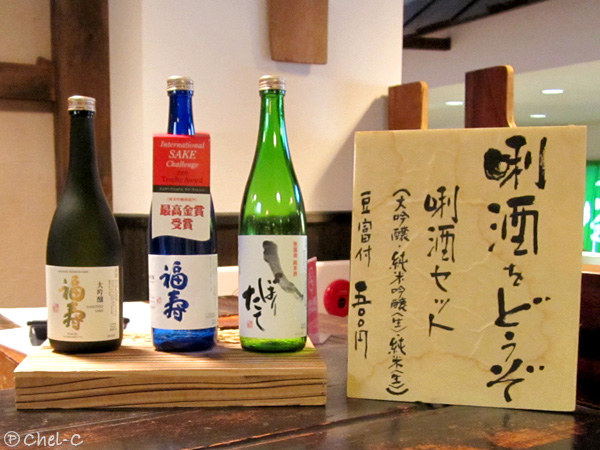 大吟醸
福寿
International
SAKE
Challenge
最高金賞
受賞
福寿
しぼり
たて
唎酒をどうぞ
唎酒セット
(大吟醸・純米吟醸(生)・純米(生))
豆富付 五〇〇円
Ⓟ Chel-C